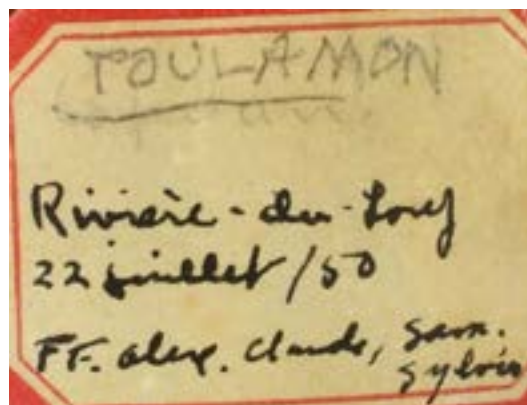 POULAMON
Rivière-du-Loup
22 juillet/50
FF. alex. Claude, Sam.
Sylvio